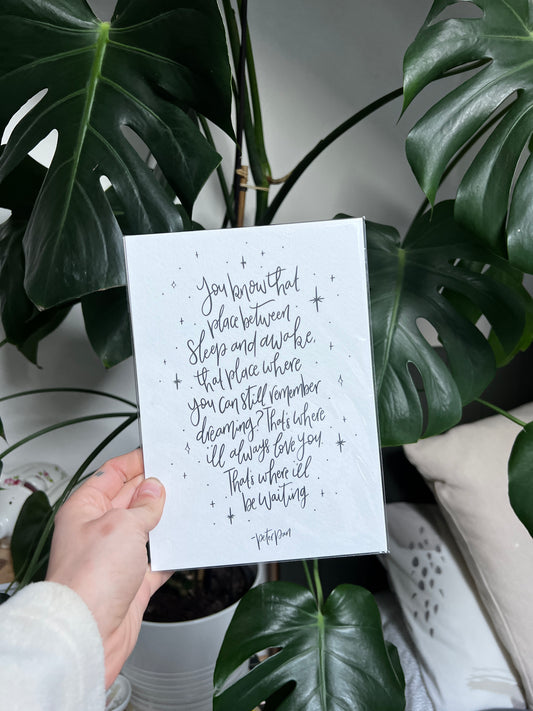 You know that
place between
sleep and awake.
that place where
you can still remember
dreaming? That's where
i'll always love you.
That's where i'll
be waiting
-peter pan